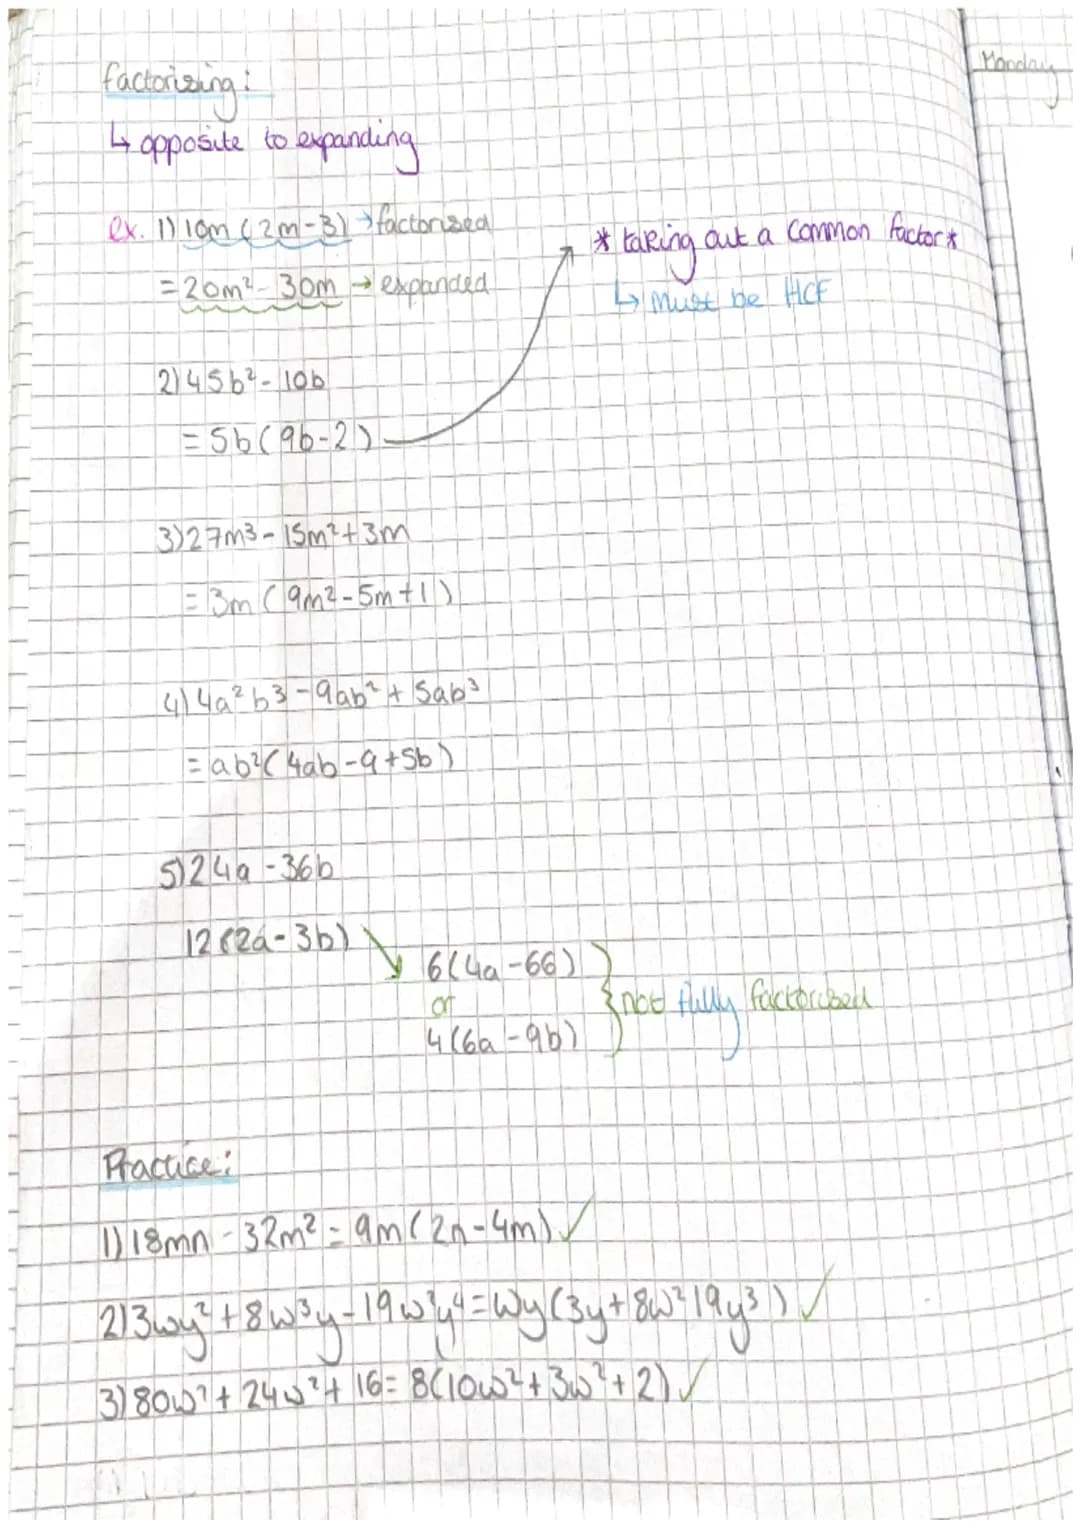 Monday
factorising:
↳ opposite to expanding
ex. 1) 10m (2m-3) → factorised
= 20m² - 30m → expanded
* taking out a common factor *
↳ must be HCF
2) 45b² - 10b
= 5b (9b-2)
3) 27m³ - 15m² + 3m
= 3m (9m² - 5m + 1)
4) 4a²b³ - 9ab² + 5ab³
= ab² (4ab - 9 + 5b)
5) 24a - 36b
12 (2a - 3b)
6(4a - 6b)
or
4(6a - 9b)
} not fully factorised
Practice:
1) 18mn - 32m² = 9m (2n - 4m) ✓
2) 3wy² + 8w³y - 19w²y⁴ = wy (3y + 8w² 19y³) ✓
3) 80w² + 24w² + 16 = 8(10w² + 3w² + 2) ✓